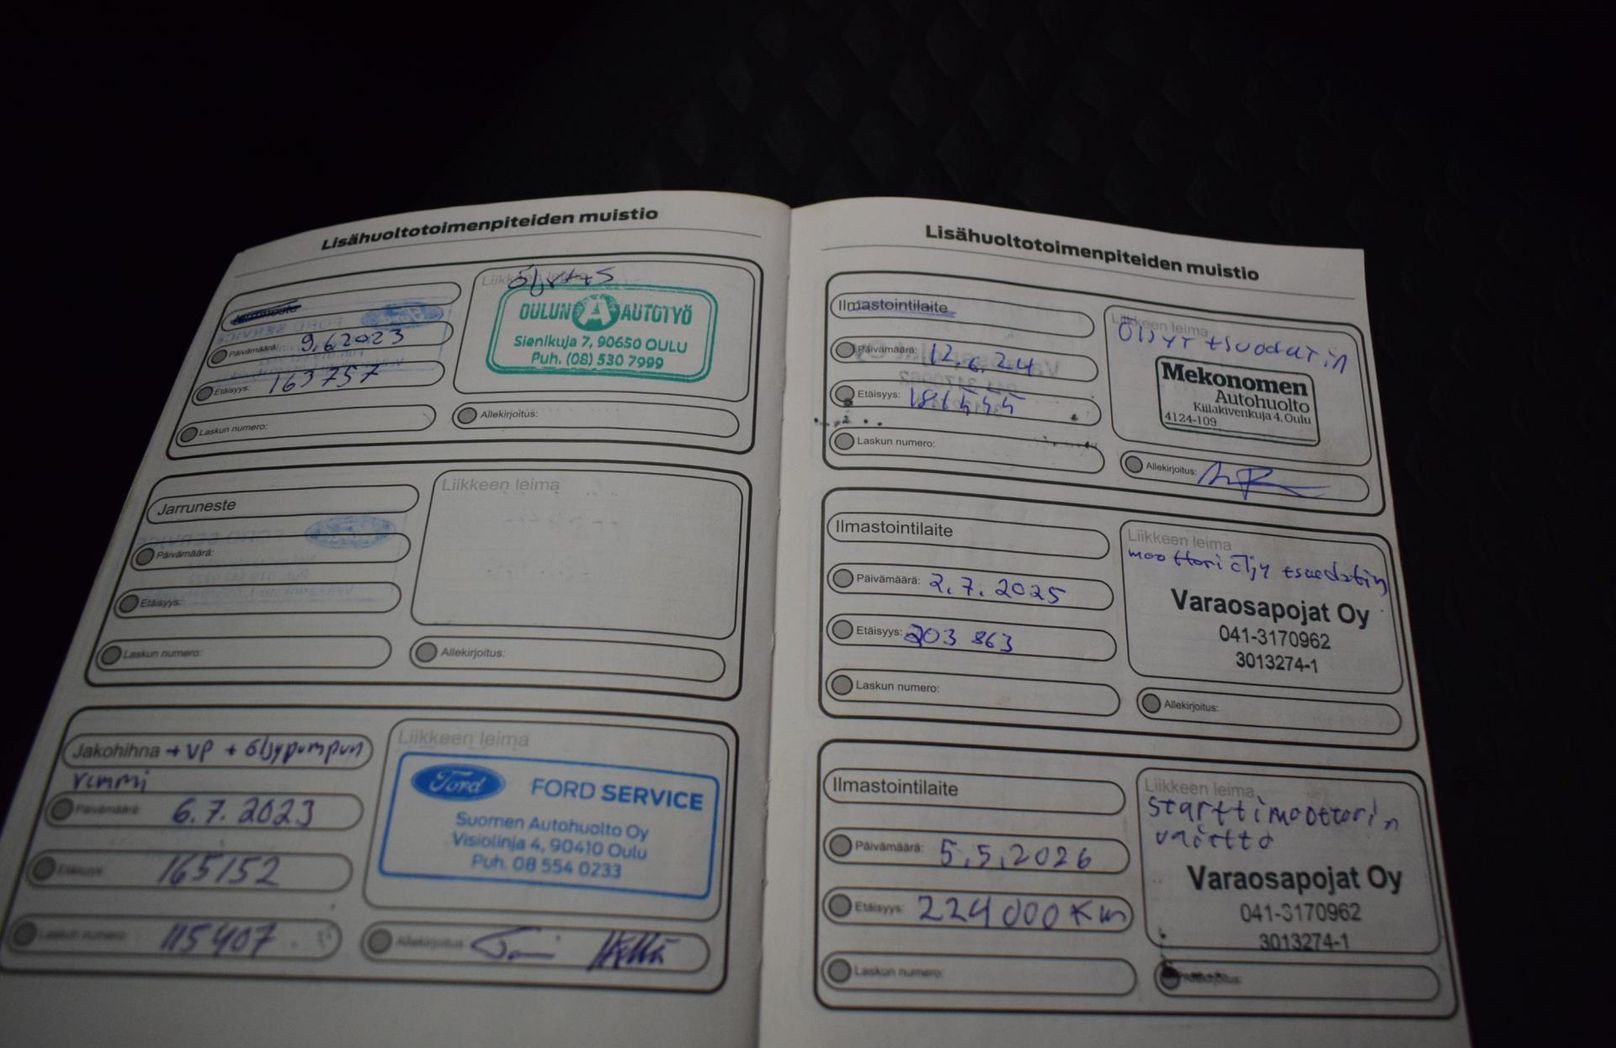 Lisähuoltotoimenpiteiden muistio
Päivämäärä: 9.6.2023
Etäisyys: 163757
Laskun numero:
Liikkeen leima
OULUN A AUTOTYÖ
Sienikuja 7, 90650 OULU
Puh. (08) 530 7999
Allekirjoitus:
Jarruneste
Päivämäärä:
Etäisyys:
Laskun numero:
Liikkeen leima
Allekirjoitus:
Jakohihna + VP + öljypumpun
remmi
Päivämäärä: 6.7.2023
Etäisyys: 165152
Laskun numero: 115407
Liikkeen leima
Ford FORD SERVICE
Suomen Autohuolto Oy
Visiolinja 4, 90410 Oulu
Puh. 08 554 0233
Allekirjoitus:
Lisähuoltotoimenpiteiden muistio
Ilmastointilaite
Päivämäärä: 12.6.24
Etäisyys:
Laskun numero:
Liikkeen leima
Öljyt + suodatin
Mekonomen
Autohuolto
Kiilakivenkuja 4, Oulu
4124-109
Allekirjoitus:
Ilmastointilaite
Päivämäärä: 2.7.2025
Etäisyys: 203 863
Laskun numero:
Liikkeen leima
moottori öljy + suodatin
Varaosapojat Oy
041-3170962
3013274-1
Allekirjoitus:
Ilmastointilaite
Päivämäärä: 5.5.2026
Etäisyys: 224 000 Km
Laskun numero:
Liikkeen leima
starttimoottorin
vaihto
Varaosapojat Oy
041-3170962
3013274-1